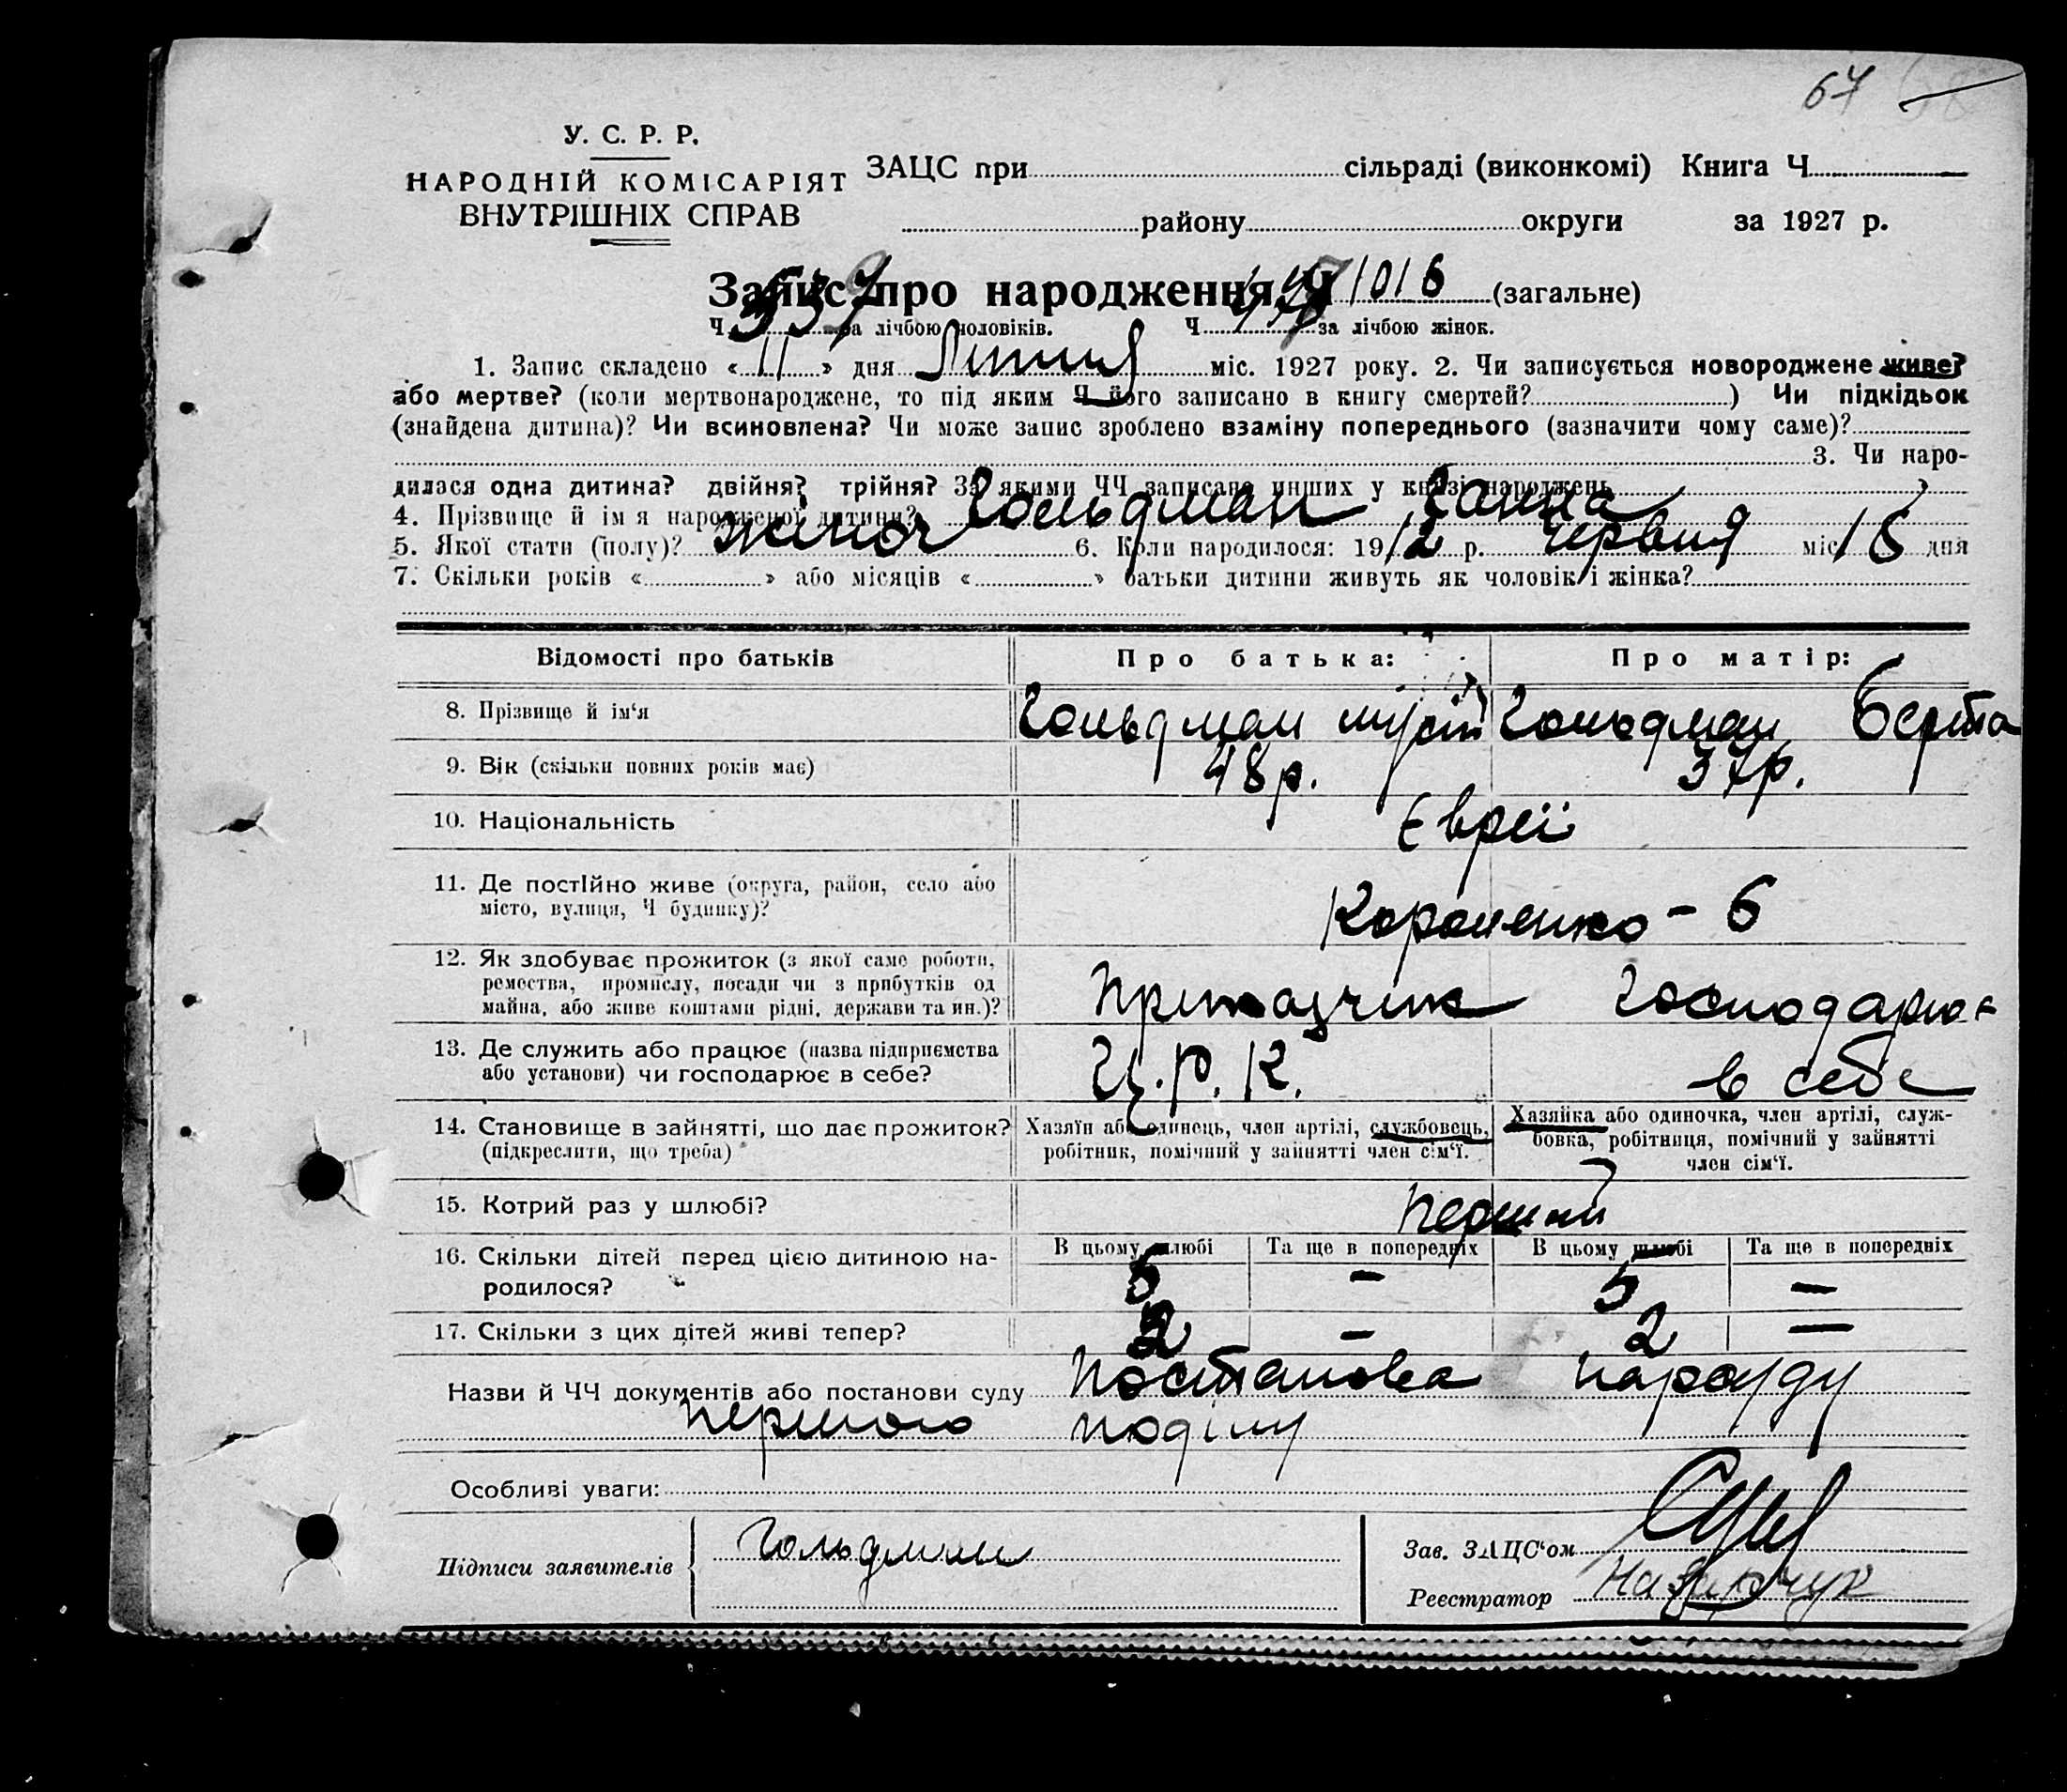 67
У. С. Р. Р.
НАРОДНІЙ КОМІСАРІЯТ
ВНУТРІШНІХ СПРАВ
ЗАЦС при сільраді (виконкомі) Книга Ч
району округи за 1927 р.
Запис про народження Ч 1016 (загальне)
Ч за лічбою чоловіків. Ч за лічбою жінок.
1. Запис складено « 11 » дня Липня міс. 1927 року. 2. Чи записується новороджене живе?
або мертве? (коли мертвонароджене, то під яким Ч його записано в книгу смертей? ) Чи підкідьок
(знайдена дитина)? Чи всиновлена? Чи може запис зроблено взаміну попереднього (зазначити чому саме)?
3. Чи наро-
дилася одна дитина? двійня? трійня? За якими ЧЧ записано инших у книзі народжень
4. Прізвище й ім я народженої дитини? Гольдман Ганна
5. Якої стати (полу)? жіноч 6. Коли народилося: 1912 р. Червня міс 15 дня
7. Скільки років « » або місяців « » батьки дитини живуть як чоловік і жінка?
Відомості про батьків Про батька: Про матір:
8. Прізвище й ім'я Гольдман Гольдман Берта
9. Вік (скільки повних років має) 48 р. 37 р.
10. Національність Євреї
11. Де постІйно живе (округа, район, село або
місто, вулиця, Ч будинку)? Короленко - 6
12. Як здобуває прожиток (з якої саме роботи,
ремества, промислу, посади чи з прибутків од
майна, або живе коштами рідні, держави та ин.)? Приказчик Господарює
13. Де служить або працює (назва підприємства
або установи) чи господарює в себе? Ц.Р.К. в себе
14. Становище в зайнятті, що дає прожиток?
(підкреслити, що треба)
Хазяїн або одинець, член артілі, службовець,
робітник, помічний у зайнятті член сім'ї.
Хазяйка або одиночка, член артілі, служ-
бовка, робітниця, помічний у зайнятті
член сім'ї.
15. Котрий раз у шлюбі? Перший
16. Скільки дітей перед цією дитиною на-
родилося?
В цьому шлюбі Та ще в попередніх В цьому шлюбі Та ще в попередніх
5 - 5 -
17. Скільки з цих дітей живі тепер? 2 - 2 -
Назви й ЧЧ документів або постанови суду Постанова нарсуду
першого поділу
Особливі уваги:
Підписи заявителів Гольдман
Зав. ЗАЦС'ом
Реєстратор Назарчук